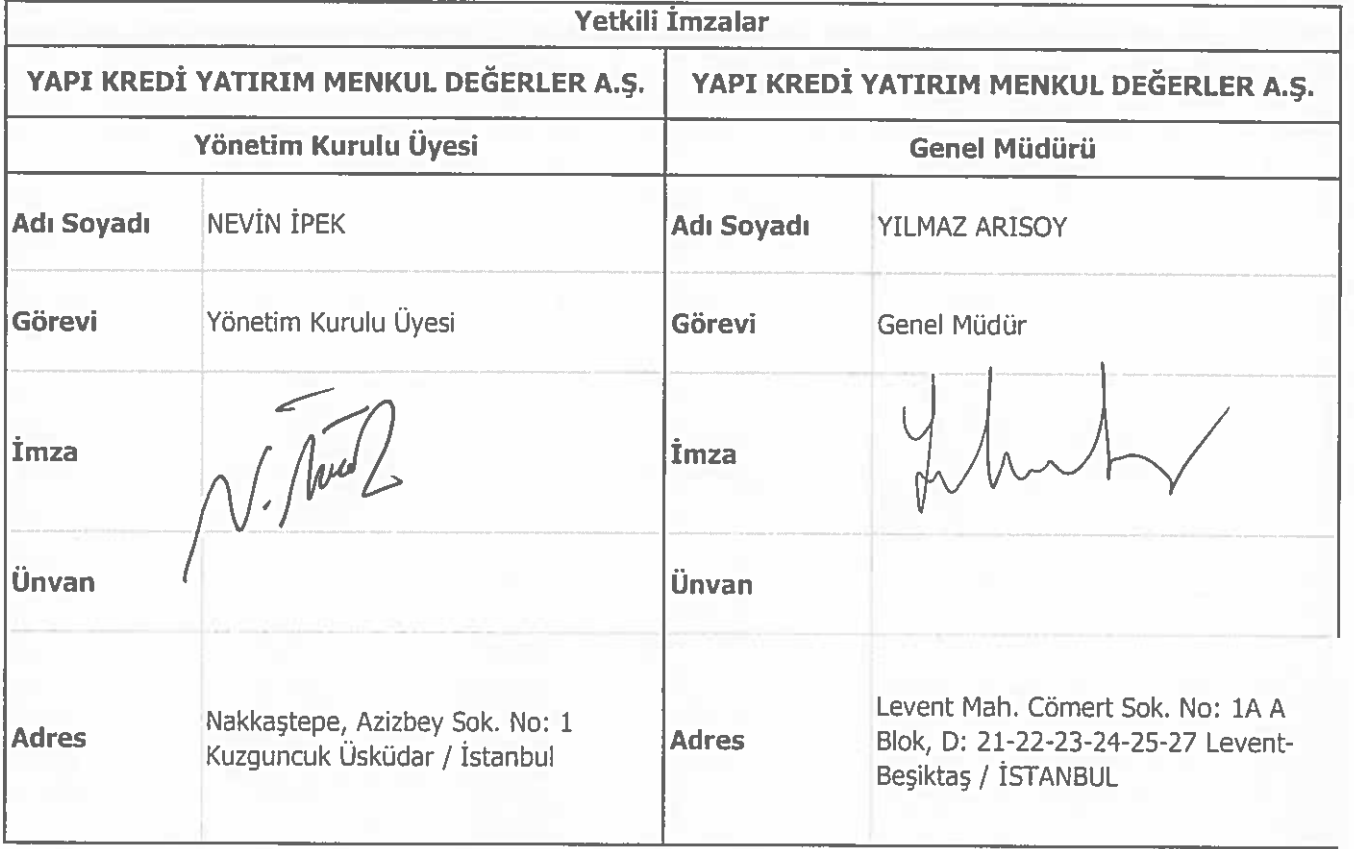 Yetkili İmzalar
YAPI KREDİ YATIRIM MENKUL DEĞERLER A.Ş.
YAPI KREDİ YATIRIM MENKUL DEĞERLER A.Ş.
Yönetim Kurulu Üyesi
Genel Müdürü
Adı Soyadı
NEVİN İPEK
Adı Soyadı
YILMAZ ARISOY
Görevi
Yönetim Kurulu Üyesi
Görevi
Genel Müdür
İmza
N.
İmza
Ünvan
Ünvan
Adres
Nakkaştepe, Azizbey Sok. No: 1
Kuzguncuk Üsküdar / İstanbul
Adres
Levent Mah. Cömert Sok. No: 1A A
Blok, D: 21-22-23-24-25-27 Levent-
Beşiktaş / İSTANBUL